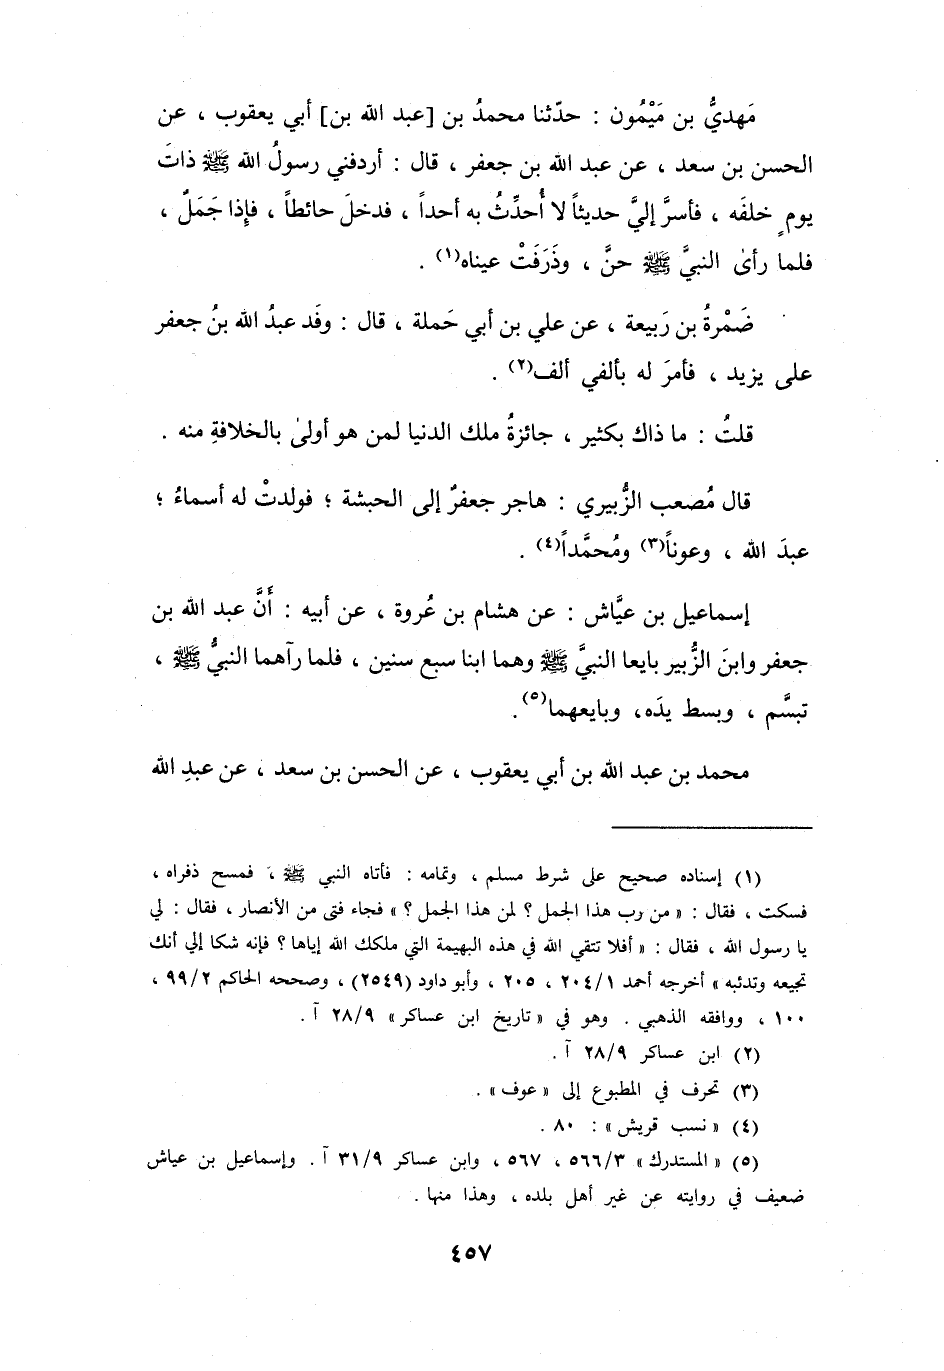 مَهديُّ بن مَيْمُون : حدّثنا محمدُ بن [عبد الله بن] أبي يعقوب ، عن
الحسن بن سعد ، عن عبد الله بن جعفر ، قال : أردفني رسولُ الله ﷺ ذاتَ
يومٍ خلفَه ، فأسرَّ إليَّ حديثاً لا أُحدِّثُ به أحداً ، فدخلَ حائطاً ، فإِذا جَمَلٌ ،
فلما رأىٰ النبيَّ ﷺ حنَّ ، وذَرَفَتْ عيناه(١) .
ضَمْرةُ بن رَبيعة ، عن علي بن أبي حَملة ، قال : وفَد عبدُ الله بنُ جعفر
على يزيد ، فأمرَ له بألفي ألف(٢) .
قلتُ : ما ذاك بكثير ، جائزةُ ملك الدنيا لمن هو أولىٰ بالخلافةِ منه .
قال مُصعب الزُّبيري : هاجر جعفرٌ إلى الحبشة ؛ فولدتْ له أسماءُ ؛
عبدَ الله ، وعوناً(٣) ومُحمَّداً(٤) .
إسماعيل بن عيَّاش : عن هشام بن عُروة ، عن أبيه : أَنَّ عبد الله بن
جعفر وابنَ الزُّبير بايعا النبيَّ ﷺ وهما ابنا سبع سنين ، فلما رآهما النبيُّ ﷺ ،
تبسَّم ، وبسط يدَه، وبايعهما(٥) .
محمد بن عبد الله بن أبي يعقوب ، عن الحسن بن سعد ، عن عبدِ الله
(١) إسناده صحيح على شرط مسلم ، وتمامه : فأتاه النبي ﷺ ، فمسح ذفراه ،
فسكت ، فقال : « من رب هذا الجمل ؟ لمن هذا الجمل ؟ » فجاء فتى من الأنصار ، فقال : لي
يا رسول الله ، فقال : « أفلا تتقي الله في هذه البهيمة التي ملكك الله إياها ؟ فإنه شكا إلي أنك
تجيعه وتدئبه » أخرجه أحمد ٢٠٤/١ ، ٢٠٥ ، وأبو داود (٢٥٤٩) ، وصححه الحاكم ٩٩/٢ ،
١٠٠ ، ووافقه الذهبي . وهو في « تاريخ ابن عساكر » ٢٨/٩ آ .
(٢) ابن عساكر ٢٨/٩ آ .
(٣) تحرف في المطبوع إلى « عوف » .
(٤) « نسب قريش » : ٨٠ .
(٥) « المستدرك » ٥٦٦/٣ ، ٥٦٧ ، وابن عساكر ٣١/٩ آ . وإسماعيل بن عياش
ضعيف في روايته عن غير أهل بلده ، وهذا منها .
٤٥٧